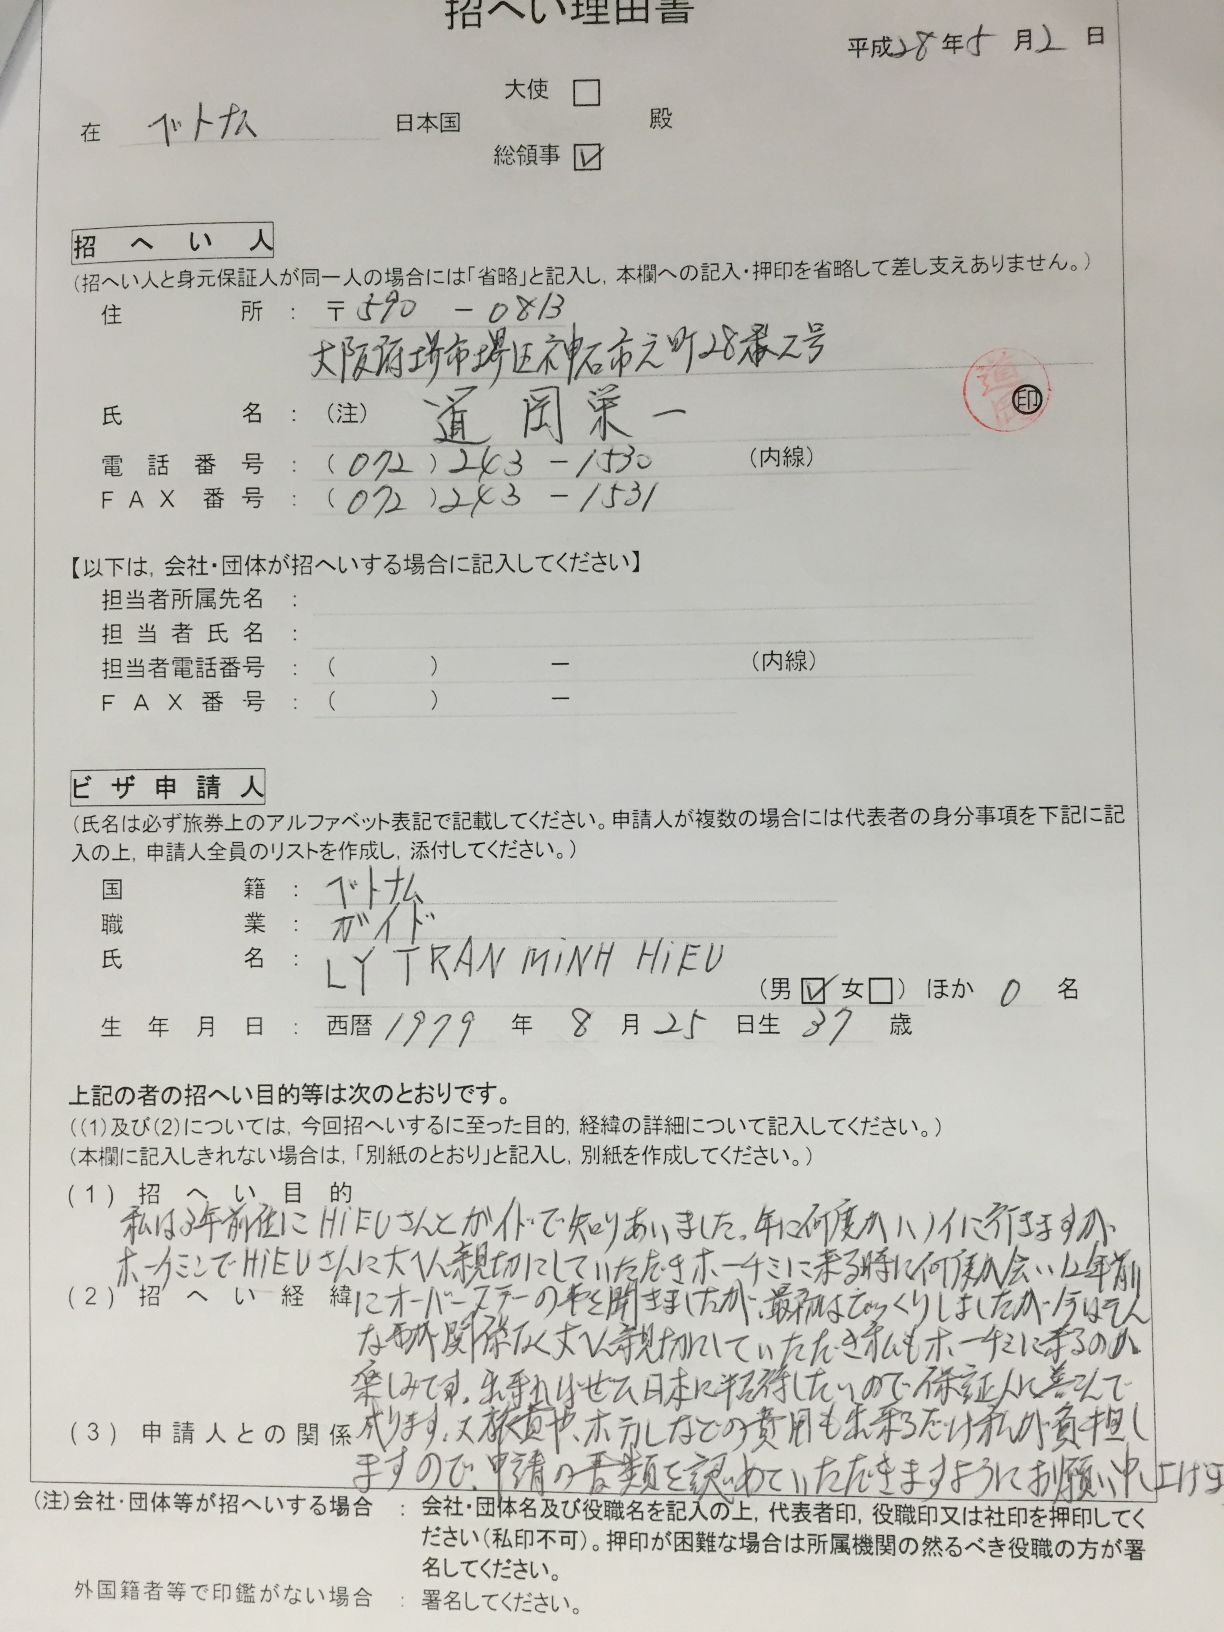 招へい理由書
平成28年5月2日
大使 □
在 ベトナム 日本国 殿
総領事 ☑
招へい人
(招へい人と身元保証人が同一人の場合には「省略」と記入し，本欄への記入・押印を省略して差し支えありません。)
住所 : 〒590 - 0813
大阪府堺市堺区神石市之町28番2号
氏名 : (注) 道岡栄一 印
道岡
電話番号 : (072)243-1530 (内線)
FAX番号 : (072)243-1531
【以下は，会社・団体が招へいする場合に記入してください】
担当者所属先名 :
担当者氏名 :
担当者電話番号 : ( ) － (内線)
FAX番号 : ( ) －
ビザ申請人
(氏名は必ず旅券上のアルファベット表記で記載してください。申請人が複数の場合には代表者の身分事項を下記に記
入の上，申請人全員のリストを作成し，添付してください。)
国籍 : ベトナム
職業 : ガイド
氏名 : LY TRAN MiNH HiEU
(男☑女□) ほか 0 名
生年月日 : 西暦1979年8月25日生 37歳
上記の者の招へい目的等は次のとおりです。
((1)及び(2)については，今回招へいするに至った目的，経緯の詳細について記入してください。)
(本欄に記入しきれない場合は，「別紙のとおり」と記入し，別紙を作成してください。)
(1) 招へい目的
私は3年前位にHiEUさんとガイドで知りあいました。年に何度かハノイに行きますが
ホーチミンでHiEUさんに大へん親切にしていただきホーチミに来る時に何度か会い12年前
(2) 招へい経緯 にオーバーステーの事を聞きましたが、最初はびっくりしましたが今はそん
な事関係なく大へん親切にしていただき私もホーチミに来るのが
楽しみです。出来ればぜひ日本に招待したいので保証人に喜こんで
(3) 申請人との関係 成ります。又旅費や、ホテルなどの費用も出来るだけ私が負担し
ますので、申請の書類を認めていただきますようにお願い申し上げます
(注)会社・団体等が招へいする場合 : 会社・団体名及び役職名を記入の上，代表者印，役職印又は社印を押印してく
ださい(私印不可)。押印が困難な場合は所属機関の然るべき役職の方が署
名してください。
外国籍者等で印鑑がない場合 : 署名してください。